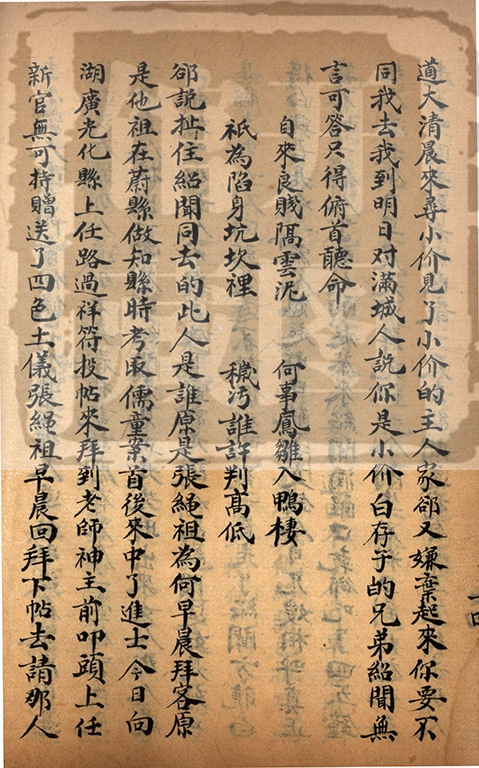 道大清晨來尋小价見了小价的主人家郤又嫌棄起來你要不
同我去我到明日对滿城人說你是小价白存子的兄弟紹聞無
言可答只得俯首聽命
自來良賤隔雲泥 何事鳳雛入鴨棲
祇為陷身坑坎裡 穢污誰許判高低
郤說扯住紹聞同去的此人是誰原是張繩祖為何早晨拜客原
是他祖在蔚縣做知縣時考取儒童案首後來中了進士今日向
湖廣光化縣上任路過祥符投帖來拜到老師神主前叩頭上任
新官無可持贈送了四色土儀張繩祖早晨回拜下帖去請那人